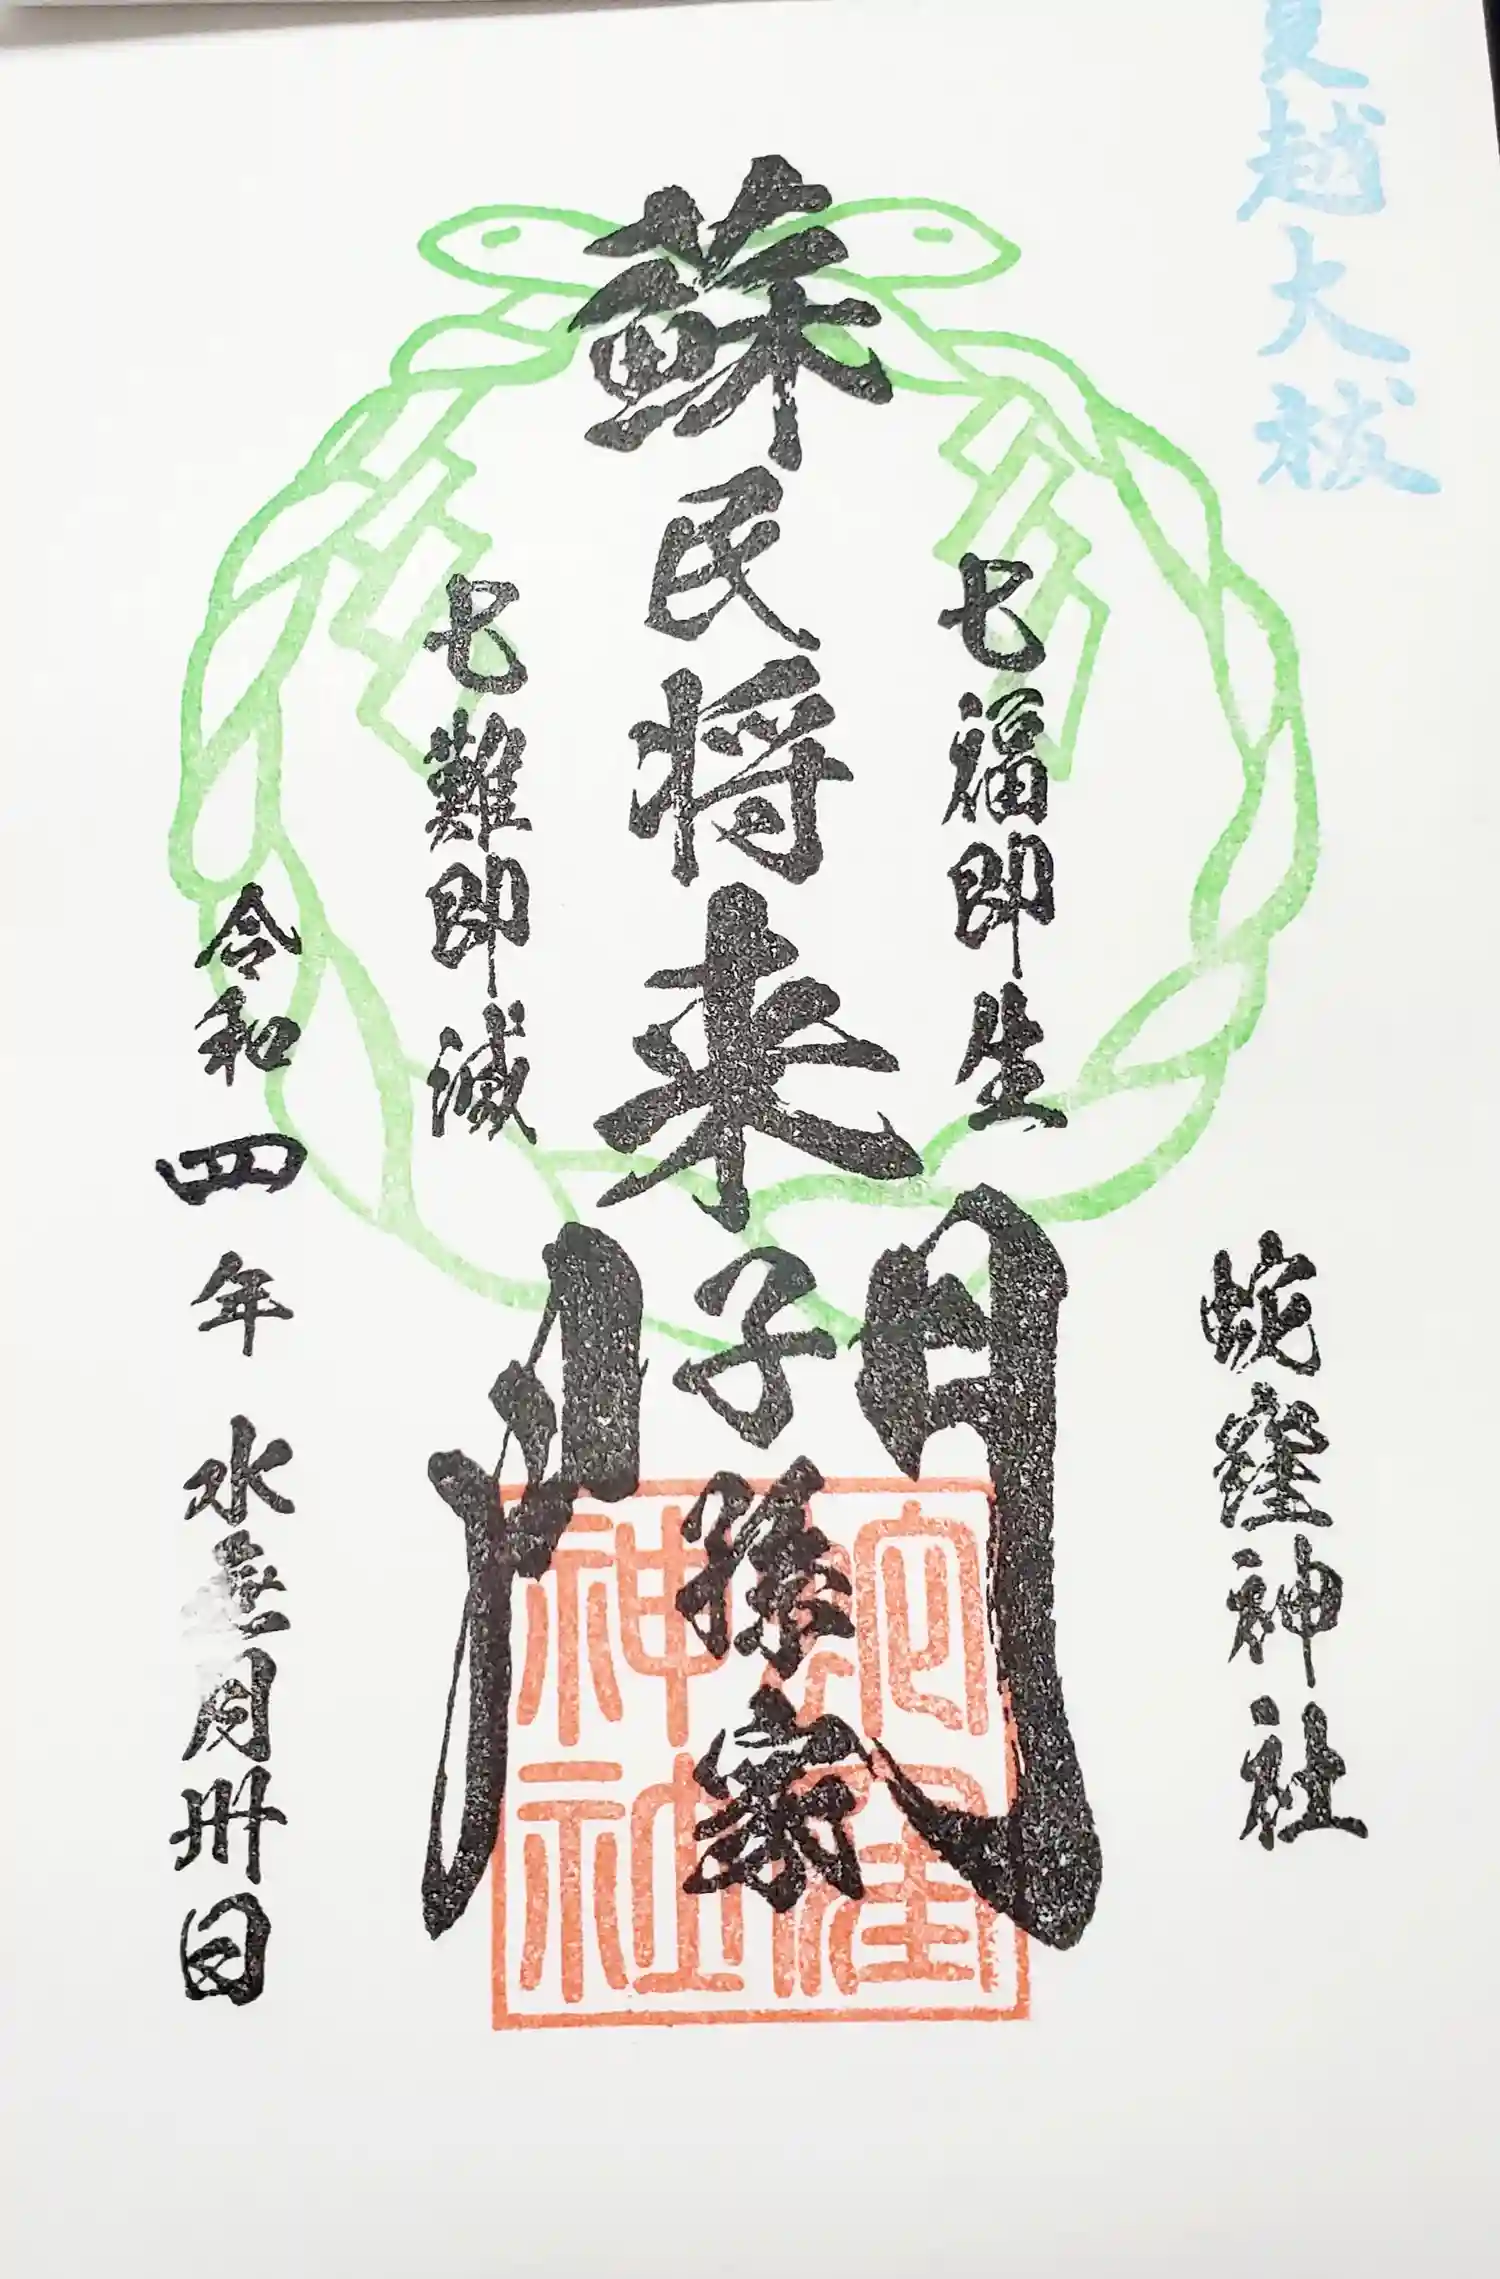 夏越大祓
蛇窪神社
七福即生
蘇民将来子孫家門
七難即滅
令和四年水無月卅日
蛇窪
神社